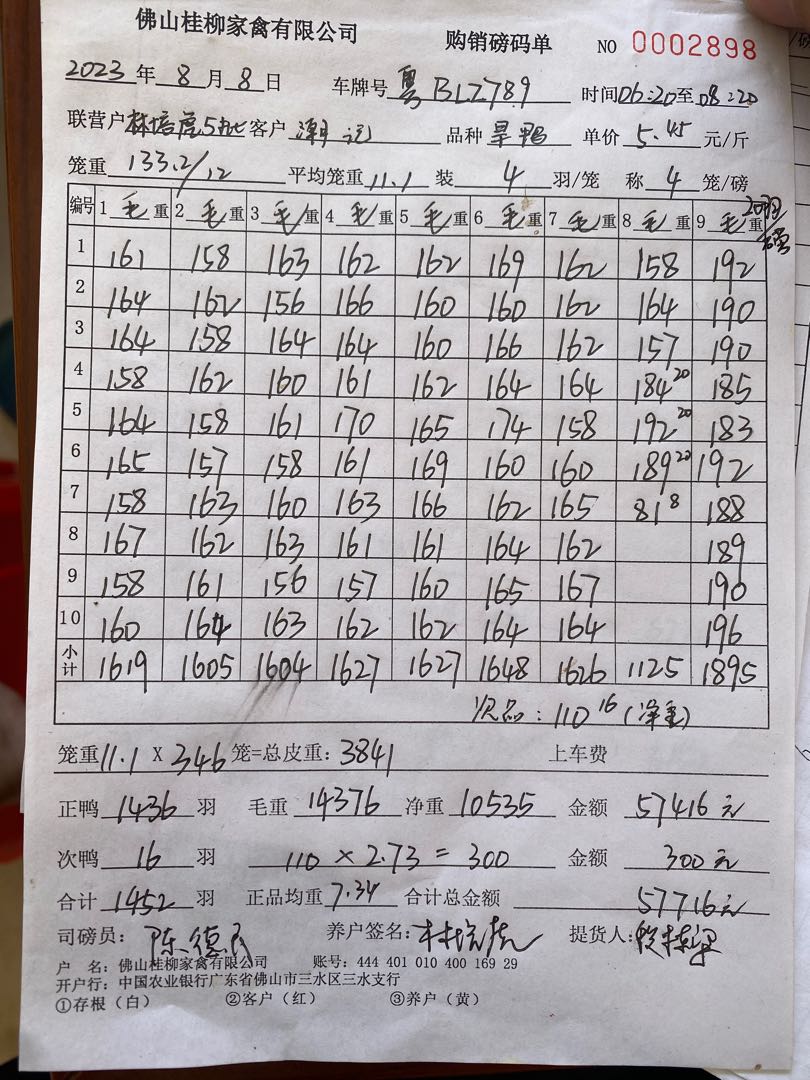 佛山桂柳家禽有限公司 购销磅码单 NO 0002898
2023年8月8日 车牌号 粤BLZ789 时间06:20至08:20
联营户 林培 客户 潮记 品种 旱鸭 单价 5.45 元/斤
笼重 133.2/12 平均笼重 11.1 装 4 羽/笼 称 4 笼/磅
20羽/磅
编号 1毛重 2毛重 3毛重 4毛重 5毛重 6毛重 7毛重 8毛重 9毛重
1 161 158 163 162 162 169 162 158 192
2 164 162 156 166 160 160 162 164 190
3 164 158 164 164 160 166 162 157 190
4 158 162 160 161 162 164 164 184 20 185
5 164 158 161 170 165 174 158 192 20 183
6 165 157 158 161 169 160 160 189 20 192
7 158 163 160 163 166 162 165 81 8 188
8 167 162 163 161 161 164 162 189
9 158 161 156 157 160 165 167 190
10 160 164 163 162 162 164 164 196
小计 1619 1605 1604 1627 1627 1648 1626 1125 1895
次品：110 16 (净重)
笼重 11.1 X 346 笼=总皮重：3841 上车费
正鸭 1436 羽 毛重 14376 净重 10535 金额 57416元
次鸭 16 羽 110 × 2.73 = 300 金额 300元
合计 1452 羽 正品均重 7.34 合计总金额 57716元
司磅员：陈德 养户签名：林培 提货人：
户 名：佛山桂柳家禽有限公司 账号：444 401 010 400 169 29
开户行：中国农业银行广东省佛山市三水区三水支行
①存根（白） ②客户（红） ③养户（黄）